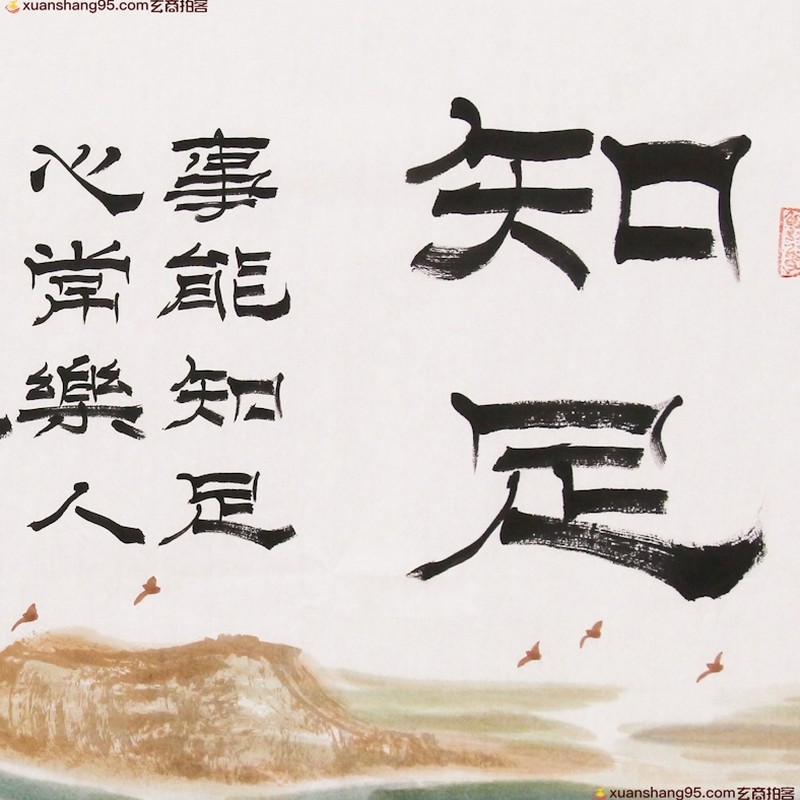 xuanshang95.com玄商拍客
知足
事能知足
心常樂人
xuanshang95.com玄商拍客